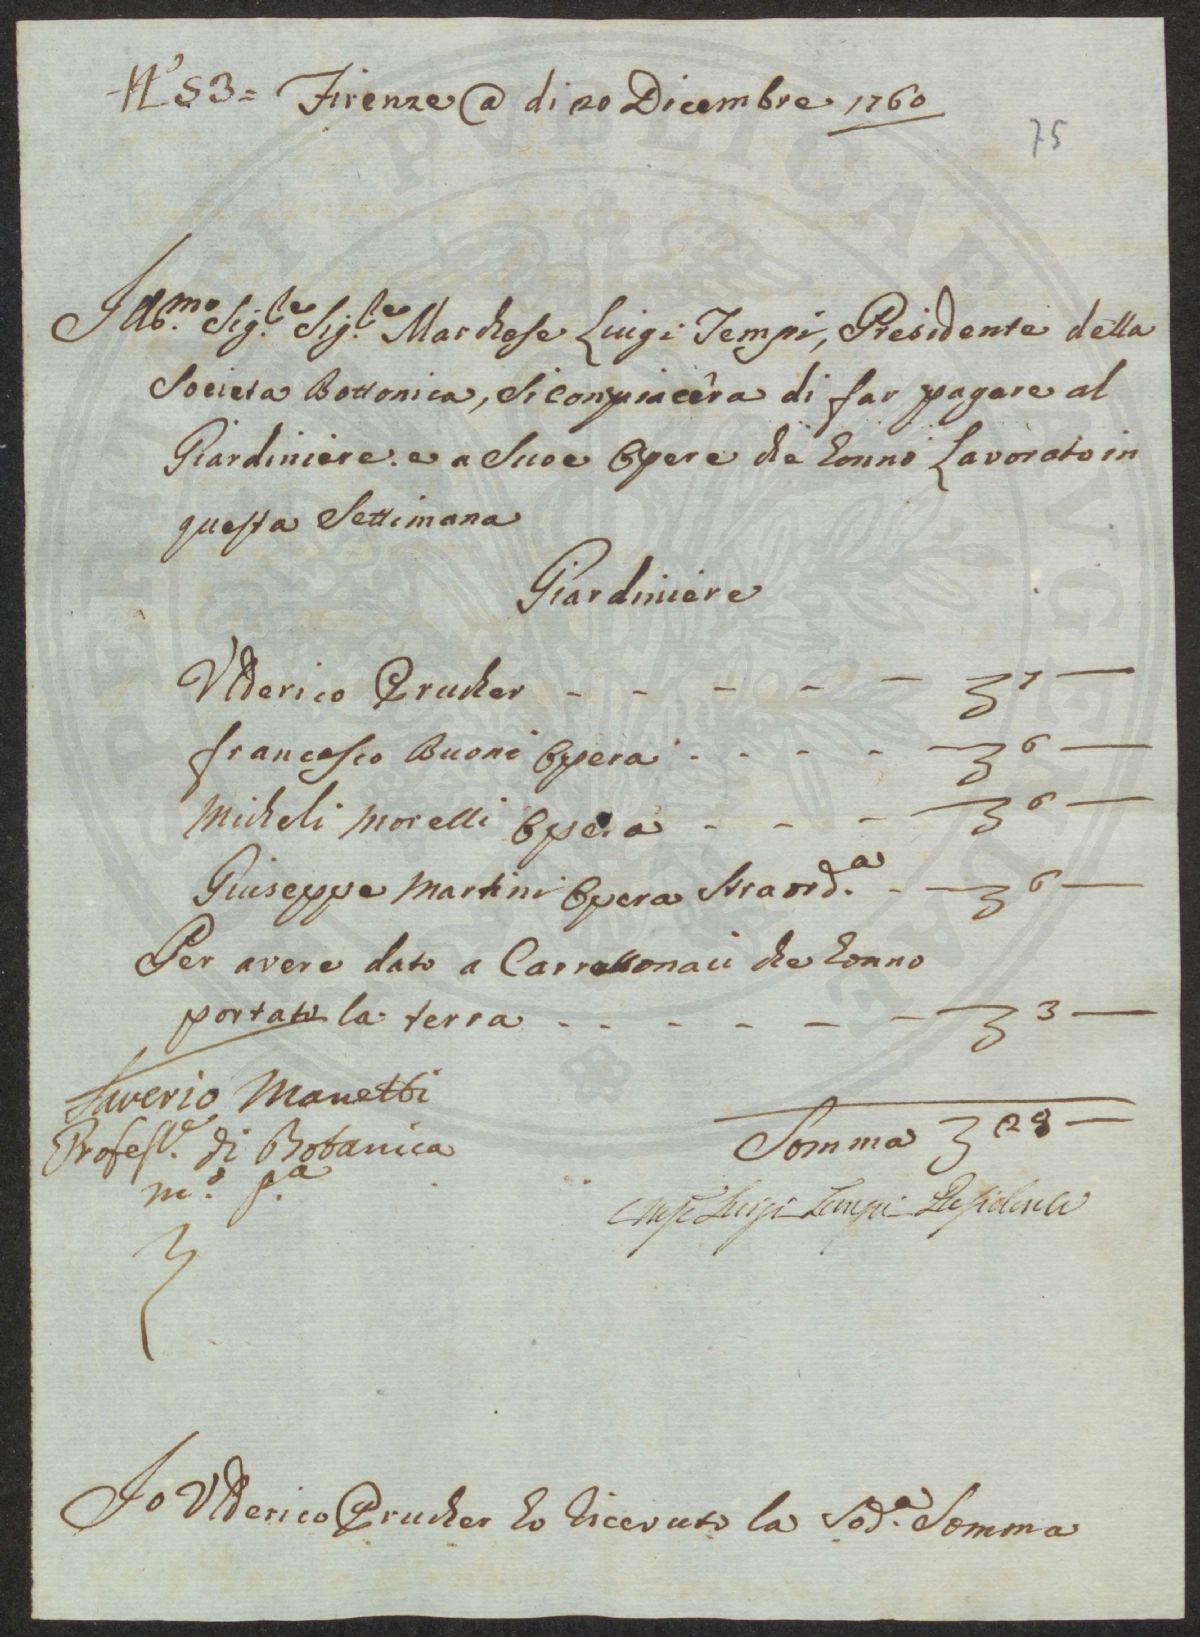 N° 53 = Firenze @ di 20 Dicembre 1760
75
Illmo. Sigle. Sigle. Marchese Luigi Tempi, Presidente della
Societa Bottonica, Si conpiacêra di far pagare al
Giardiniere e a Suoe Opere che honno Lavorato in
questa Settimana
Giardiniere
Ulderico Prucher - - - - - 7 —
francesco Buoni Opera - - - - 6 —
Micheli Morelli Opera - - - 6 —
Giuseppe Martini Opera Straord.a - 6 —
Per avere dato a Carrettonaii che honno
portato la terra - - - - - - 3 —
Saverio Manetti
Profesre. di Botanica
mo. pa.
Somma 28 —
Luigi Tempi Presidente
Io Ulderico Prucher ho riceuuto la Sod.a Somma